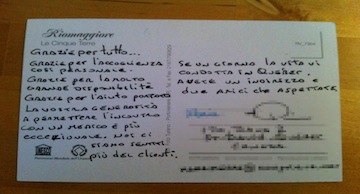 Riomaggiore
Le Cinque Terre
GRAZIE PER TUTTO...
GRAZIE PER L'ACCOGLIENZA
COSÌ PERSONALE.
GRAZIE PER LA MOLTO
GRANDE DISPONIBILITÀ
GRAZIE PER L'AIUTO PORTATO
LA VOSTRA GENEROSITÀ
A PERMETTERE L'INCONTRO
CON UN MEDICO È PIÙ
ECCEZIONALE. NOI CI
SIAMO SENTITI
PIÙ DEL CLIENTI.
SE UN GIORNO LA VITA VI
CONDOTTA IN QUEBEC,
AVETE UN INDIRIZZO E
DUE AMICI CHE ASPETTATE